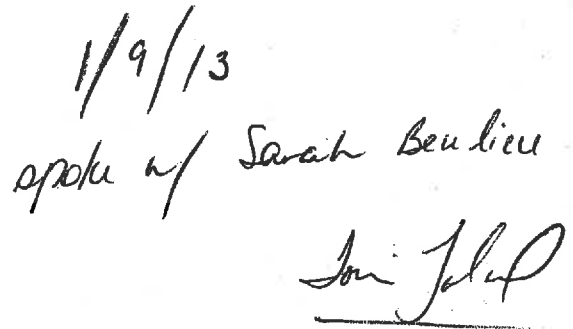 1/9/13
spoke w/ Sarah Beulieu